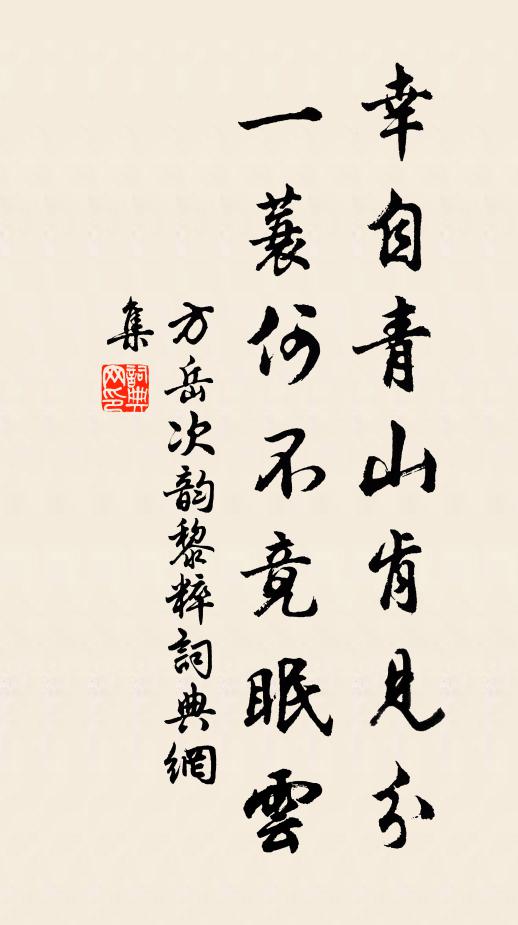 幸自青山肯見分
一蓑何不竟眠雲
方岳次韵黎粹詞典網
集
詞典网印